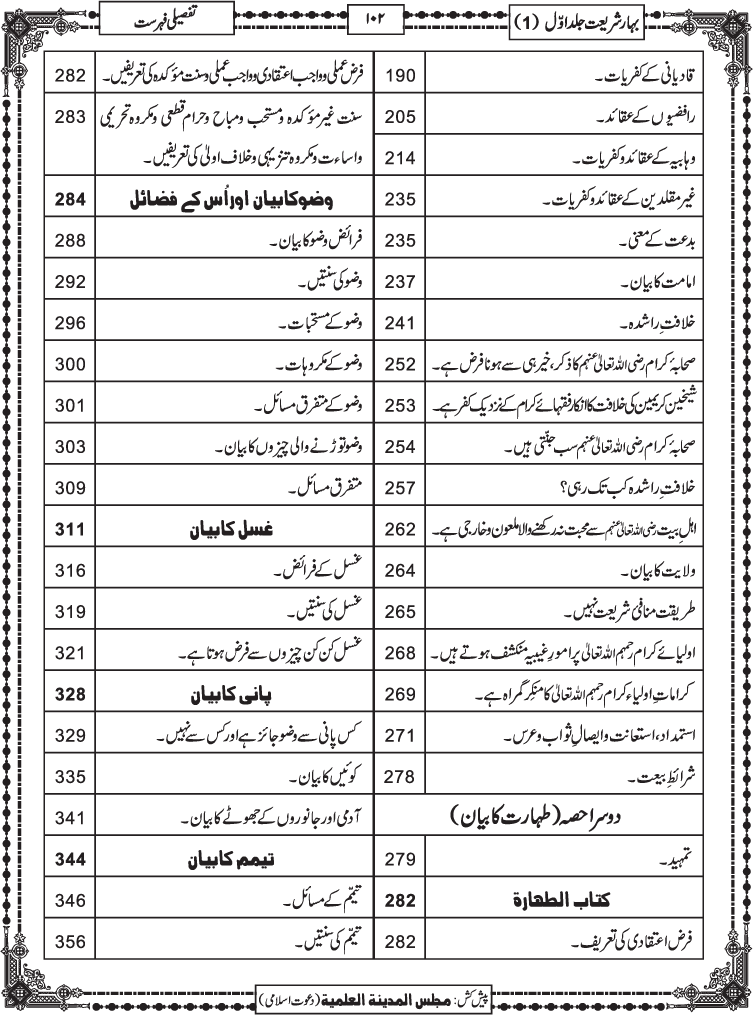 بہار شریعت جلد اوّل (1)
۱۰۲
تفصیلی فہرست
قادیانی کے کفریات۔ 190
رافضیوں کے عقائد۔ 205
وہابیہ کے عقائد و کفریات۔ 214
غیر مقلدین کے عقائد و کفریات۔ 235
بدعت کے معنی۔ 235
امامت کا بیان۔ 237
خلافتِ راشدہ۔ 241
صحابۂ کرام رضی اللہ تعالیٰ عنہم کا ذکر، خیر ہی سے ہونا فرض ہے۔ 252
شیخین کریمین کی خلافت کا انکار فقہائے کرام کے نزدیک کفر ہے۔ 253
صحابۂ کرام رضی اللہ تعالیٰ عنہم سب جنّتی ہیں۔ 254
خلافتِ راشدہ کب تک رہی؟ 257
اہلِ بیت رضی اللہ تعالیٰ عنہم سے محبت نہ رکھنے والا ملعون و خارجی ہے۔ 262
ولایت کا بیان۔ 264
طریقت منافیٔ شریعت نہیں۔ 265
اولیائے کرام رحمہم اللہ تعالیٰ پر امورِ غیبیہ منکشف ہوتے ہیں۔ 268
کراماتِ اولیاء کرام رحمہم اللہ تعالیٰ کا منکر گمراہ ہے۔ 269
استمداد، استعانت و ایصالِ ثواب و عرس۔ 271
شرائطِ بیعت۔ 278
دوسرا حصہ (طہارت کا بیان)
تمہید۔ 279
کتاب الطهارة 282
فرض اعتقادی کی تعریف۔ 282
فرض عملی و واجب اعتقادی و واجب عملی و سنت مؤکدہ کی تعریفیں۔ 282
سنت غیر مؤکدہ و مستحب و مباح و حرام قطعی و مکروہ تحریمی 283
و اساءت و مکروہ تنزیہی و خلاف اولیٰ کی تعریفیں۔
وضو کا بیان اور اُس کے فضائل 284
فرائض وضو کا بیان۔ 288
وضو کی سنتیں۔ 292
وضو کے مستحبات۔ 296
وضو کے مکروہات۔ 300
وضو کے متفرق مسائل۔ 301
وضو توڑنے والی چیزوں کا بیان۔ 303
متفرق مسائل۔ 309
غسل کا بیان 311
غسل کے فرائض۔ 316
غسل کی سنتیں۔ 319
غسل کن کن چیزوں سے فرض ہوتا ہے۔ 321
پانی کا بیان 328
کس پانی سے وضو جائز ہے اور کس سے نہیں۔ 329
کوئیں کا بیان۔ 335
آدمی اور جانوروں کے جھوٹے کا بیان۔ 341
تیمم کا بیان 344
تیمّم کے مسائل۔ 346
تیمّم کی سنتیں۔ 356
پیش کش: مجلس المدینة العلمیة (دعوت اسلامی)